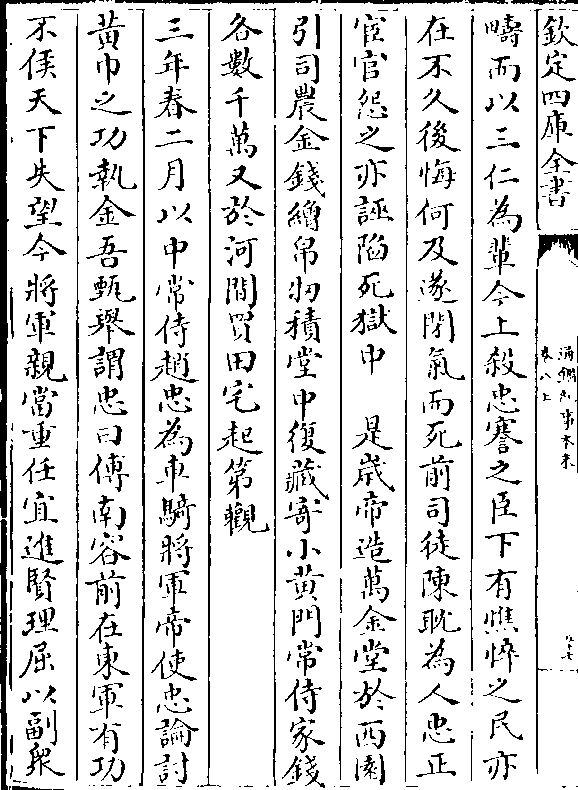 欽定四庫全書
通鑑紀事本末
卷八上
疇而以三仁為輩今上殺忠謇之臣下有憔悴之民亦
在不久後悔何及遂閉氣而死前司徒陳耽為人忠正
宦官怨之亦誣陷死獄中　是歲帝造萬金堂於西園
引司農金錢繒帛牣積堂中復藏寄小黃門常侍家錢
各數千萬又於河間買田宅起第觀
三年春二月以中常侍趙忠為車騎將軍帝使忠論討
黃巾之功執金吾甄舉謂忠曰傅南容前在東軍有功
不侯天下失望今將軍親當重任宜進賢理屈以副衆